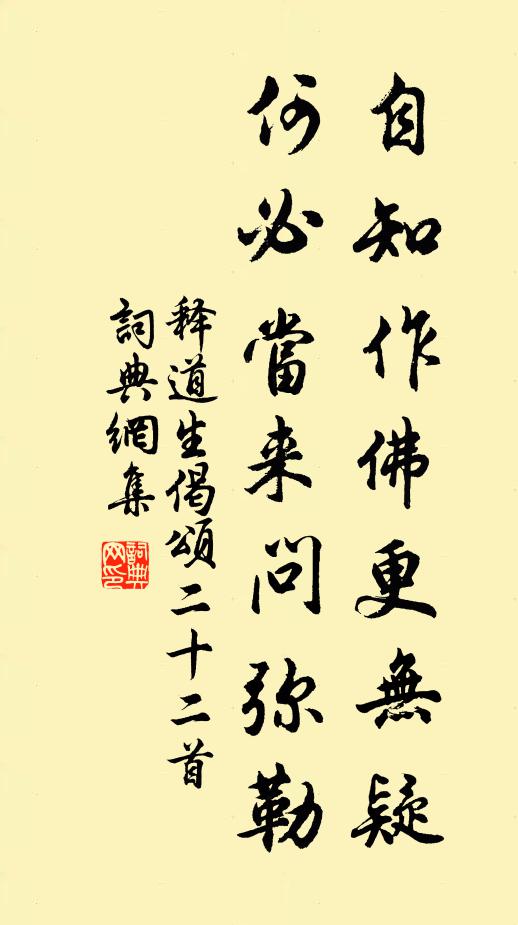 自知作佛更無疑
何必當来问弥勒
释道生偈頌二十二首
詞典網集
詞典网印